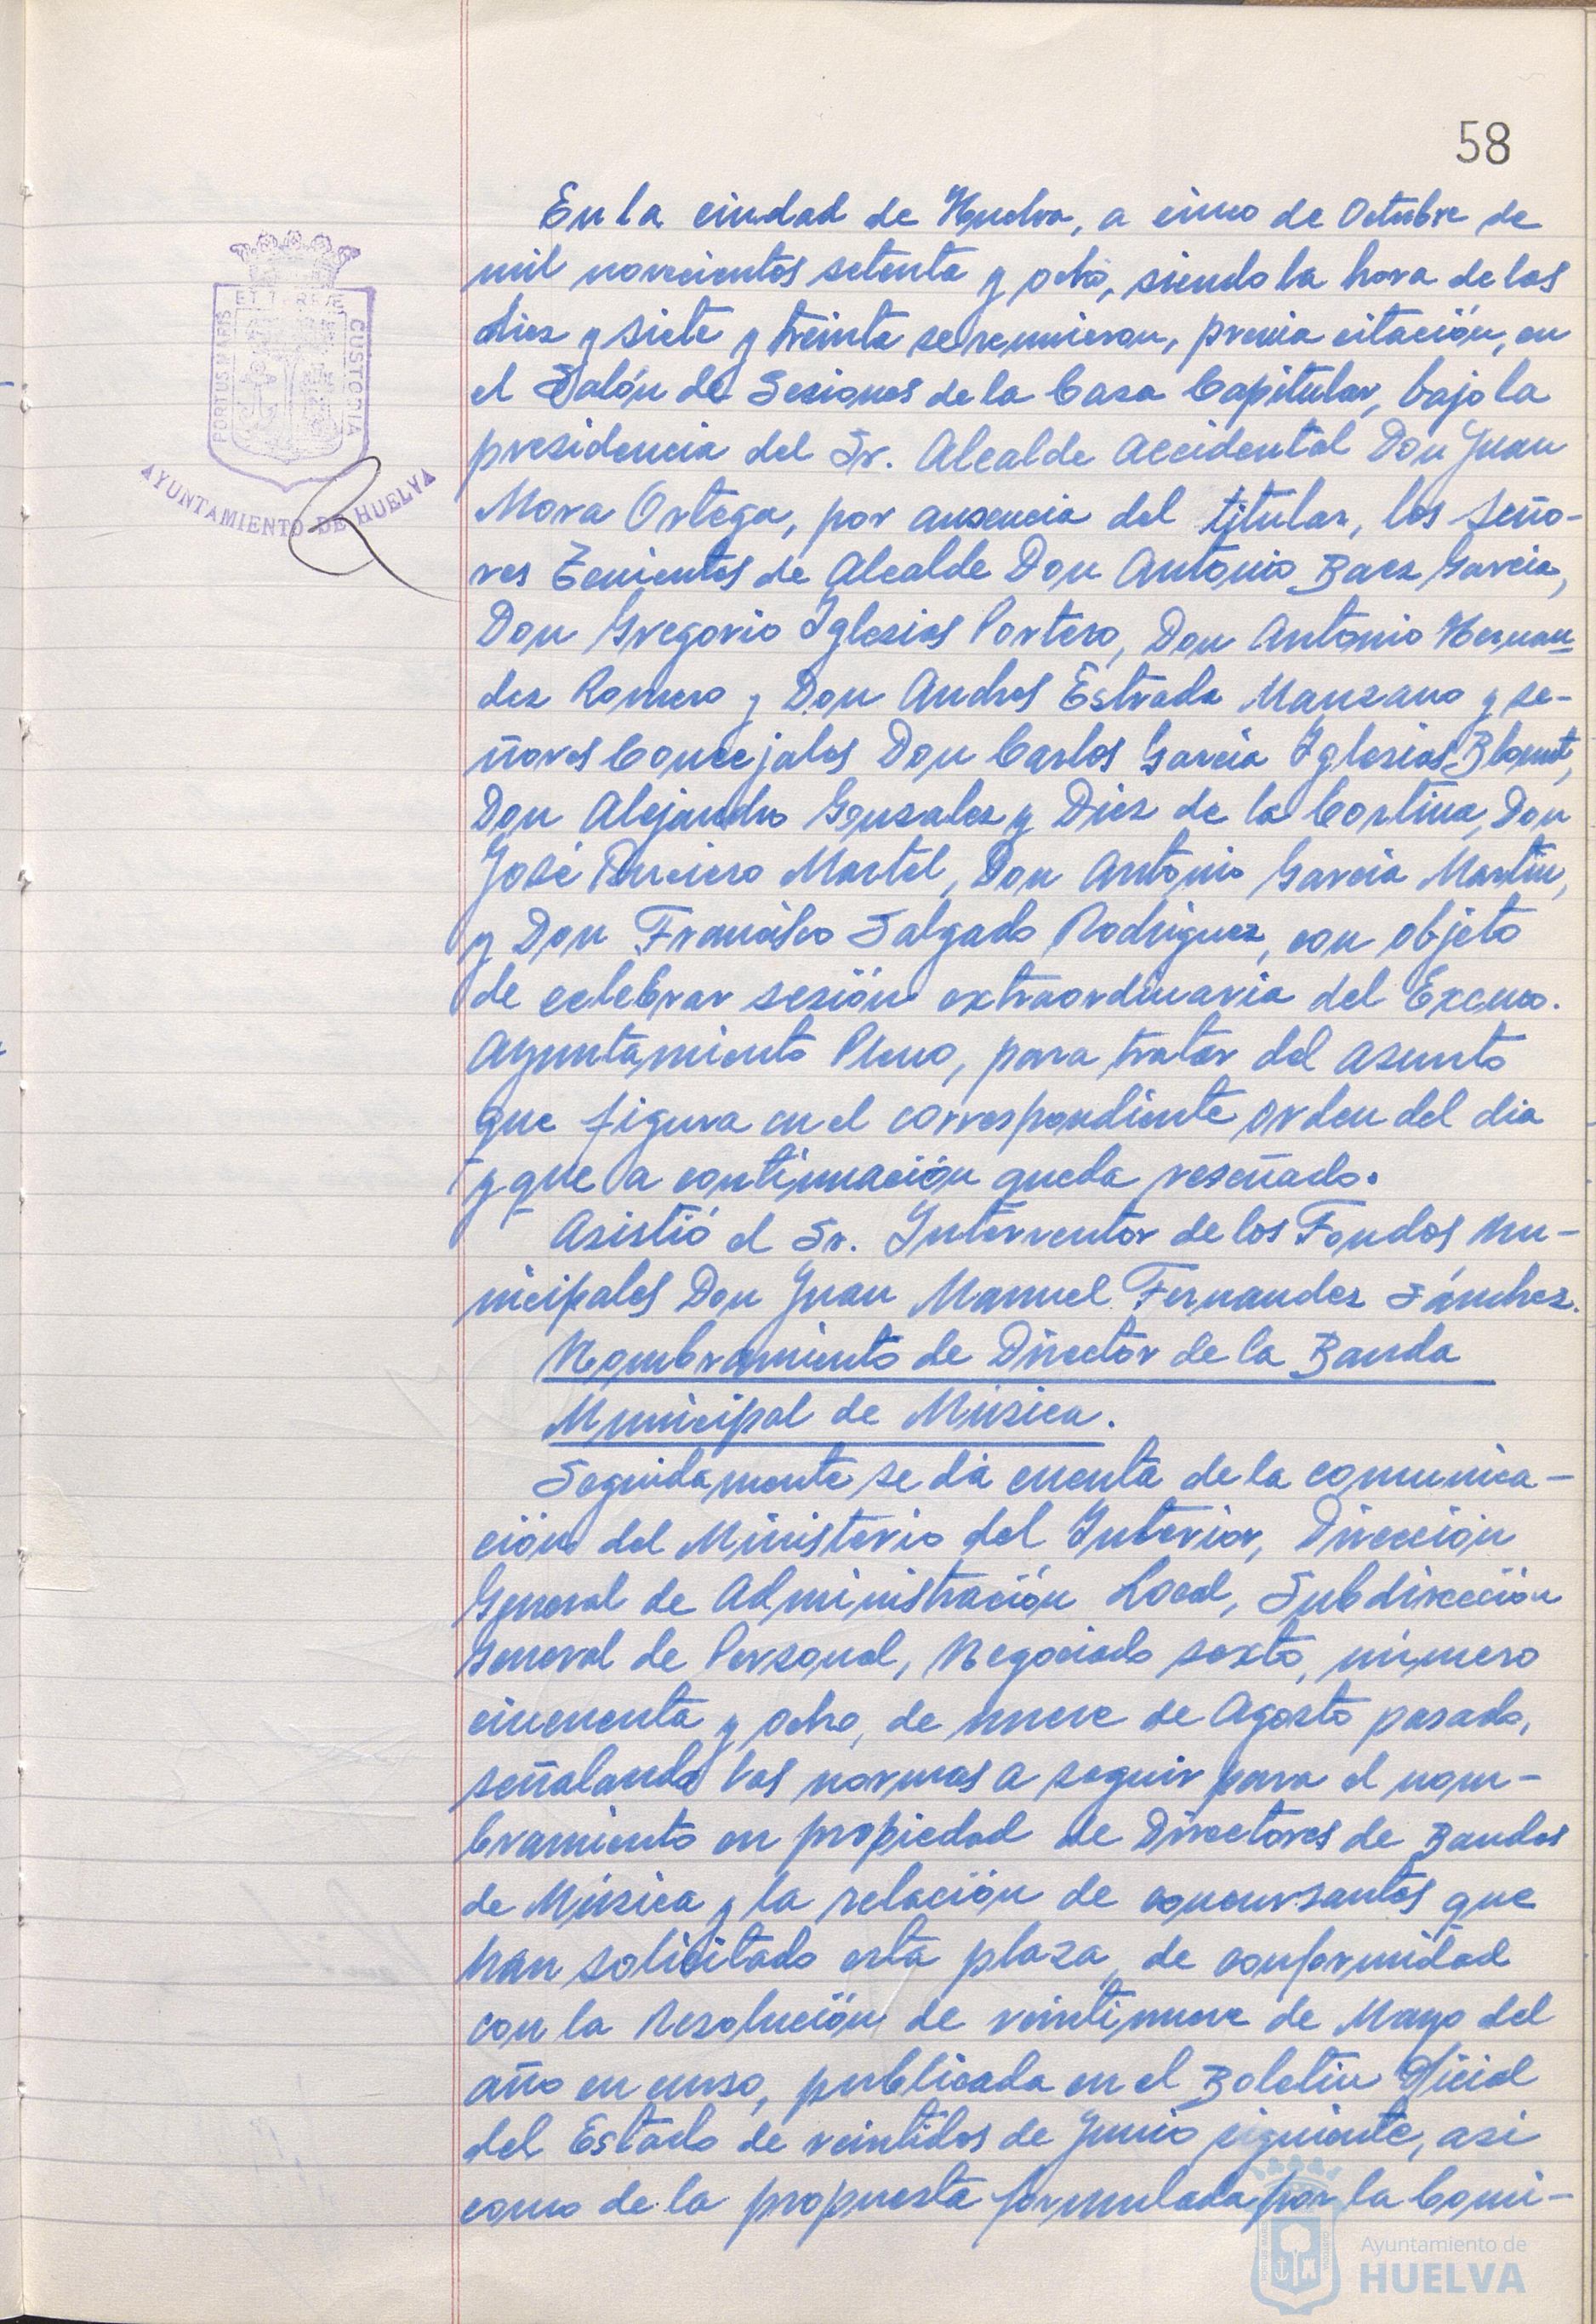 58
En la ciudad de Huelva, a cinco de Octubre de
mil novecientos setenta y ocho, siendo la hora de las
diez y siete y treinta se reunieron, previa citación, en
el Salón de Sesiones de la Casa Capitular, bajo la
presidencia del Sr. Alcalde Accidental Don Juan
Mora Ortega, por ausencia del titular, los Seño-
res Tenientes de Alcalde Don Antonio Baez Garcia,
Don Gregorio Iglesias Portero, Don Antonio Hernan-
dez Romero y Don Andres Estrada Manzano y se-
ñores Concejales Don Carlos Garcia Iglesias Blanut,
Don Alejandro Gonzalez y Diez de la Cortina, Don
José Martel, Don Antonio Garcia Martin,
y Don Francisco Salgado Rodriguez, con objeto
de celebrar sesión extraordinaria del Excmo.
Ayuntamiento Pleno, para tratar del asunto
que figura en el correspondiente orden del dia
y que a continuación queda reseñado.
Asistió el Sr. Interventor de los Fondos Mu-
nicipales Don Juan Manuel Fernandez Sánchez.
Nombramiento de Director de la Banda
Municipal de Música.
Seguidamente se dá cuenta de la comunica-
ción del Ministerio del Interior, Dirección
General de Administración Local, Subdirección
General de Personal, Negociado sexto, número
cincuenta y ocho, de nueve de Agosto pasado,
señalando las normas a seguir para el nom-
bramiento en propiedad de Directores de Bandas
de Música y la relación de concursantes que
han solicitado esta plaza, de conformidad
con la Resolución de veintinueve de Mayo del
año en curso, publicada en el Boletin Oficial
del Estado de veintidos de Junio siguiente, asi
como de la propuesta formulada por la Comi-
PORTUS MARIS ET TERRE CUSTODIA
AYUNTAMIENTO DE HUELVA
Ayuntamiento de
HUELVA